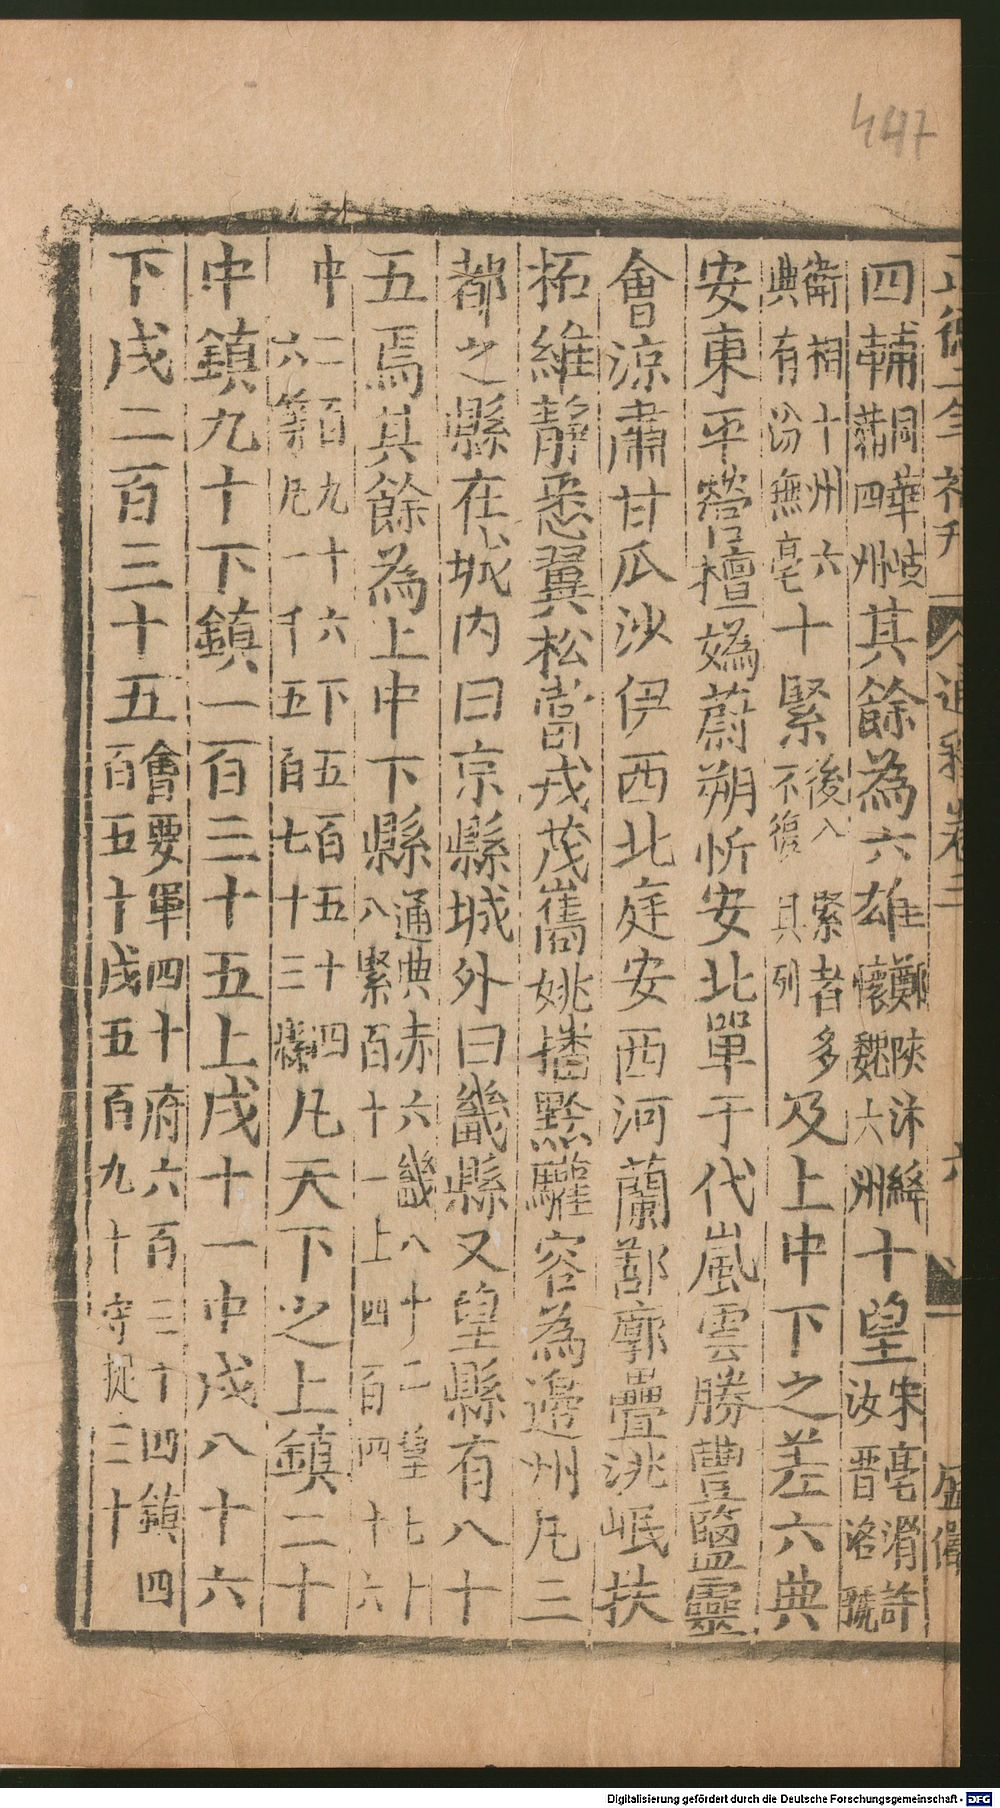 447
正德二年補刋 通釋卷三 六
四輔同華岐蒲四州其餘為六雄鄭陜汴絳懷魏六州十望宋亳渭許汝晋洛虢
衛相十州六典有汾無亳十緊後入緊者多不復具列及上中下之差六典
安東平營檀媯蔚朔忻安北單于代嵐雲勝豐鹽靈
會涼肅甘瓜沙伊西北庭安西河蘭鄯廓疊洮岷扶
拓維靜悉翼松當戎茂巂姚播黔驩容為邊州凡三
都之縣在城內曰京縣城外曰畿縣又望縣有八十
五焉其餘為上中下縣通典赤六畿八十二望七十八緊百十一上四百四十六
中二百九十六下五百五十四六等凡一千五百七十三縣凡天下之上鎮二十
中鎮九十下鎮一百三十五上戍十一中戍八十六
下戍二百三十五會要軍四十府六百三十四鎮四百五十戍五百九十守捉三十
Digitalisierung gefördert durch die Deutsche Forschungsgemeinschaft - DFG